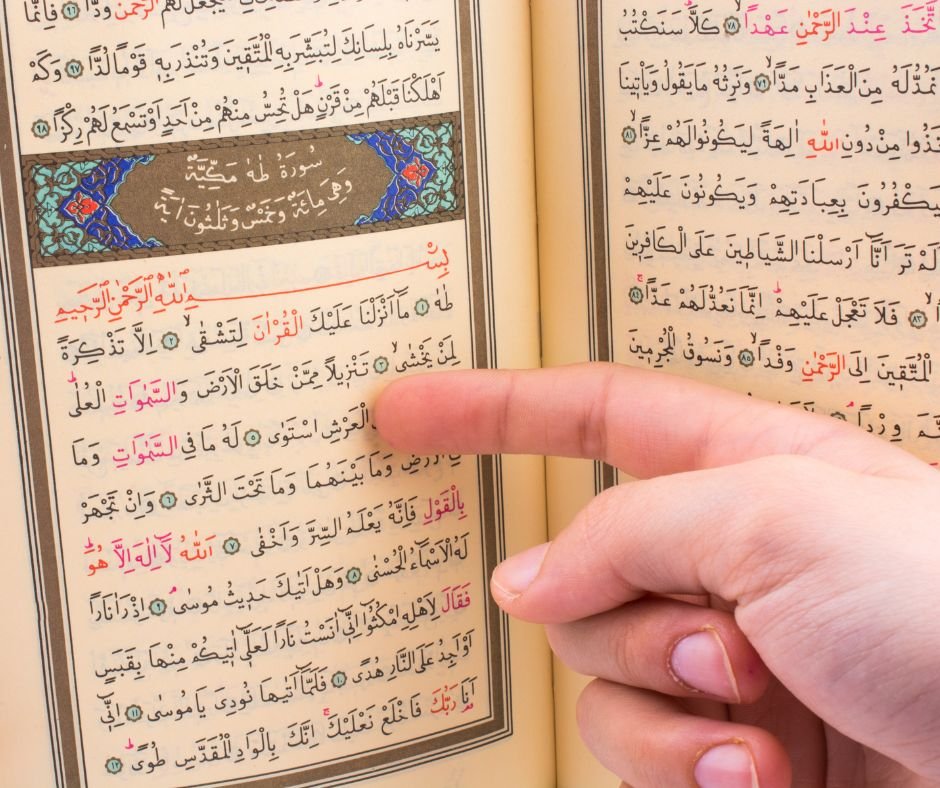 تَّخَذَ عِنْدَ الرَّحْمٰنِ عَهْدًاۙ ٧٨ كَلَّاۜ سَنَكْتُبُ
نَمُدُّ لَهُ مِنَ الْعَذَابِ مَدًّاۙ ٧٩ وَنَرِثُهُ مَا يَقُولُ وَيَأْتِينَا
خَذُوا مِنْ دُونِ اللّٰهِ اٰلِهَةً لِيَكُونُوا لَهُمْ عِزًّاۙ ٨١
يَكْفُرُونَ بِعِبَادَتِهِمْ وَيَكُونُونَ عَلَيْهِمْ
لَمْ تَرَ اَنَّٓا اَرْسَلْنَا الشَّيَاطِينَ عَلَى الْكَافِرِينَ
٨٣ فَلَا تَعْجَلْ عَلَيْهِمْۜ اِنَّمَا نَعُدُّ لَهُمْ عَدًّاۚ ٨٤
الْمُتَّقِينَ اِلَى الرَّحْمٰنِ وَفْدًاۙ ٨٥ وَنَسُوقُ الْمُجْرِمِينَ
وِرْدًاۢ
الرَّحْمٰنُ وُدًّا ٩٦ فَاِنَّمَا
يَسَّرْنَاهُ بِلِسَانِكَ لِتُبَشِّرَ بِهِ الْمُتَّقِينَ وَتُنْذِرَ بِهِ قَوْمًا لُدًّا ٩٧ وَكَمْ
اَهْلَكْنَا قَبْلَهُمْ مِنْ قَرْنٍۜ هَلْ تُحِسُّ مِنْهُمْ مِنْ اَحَدٍ اَوْ تَسْمَعُ لَهُمْ رِكْزًا ٩٨
سُورَةُ طٰهٰ مَكِّيَّةٌ
وَهِيَ مِائَةٌ وَخَمْسٌ وَثَلٰثُونَ اٰيَةً
بِسْمِ اللّٰهِ الرَّحْمٰنِ الرَّحِيمِ
طٰهٰ ١ مَٓا اَنْزَلْنَا عَلَيْكَ الْقُرْاٰنَ لِتَشْقٰىۙ ٢ اِلَّا تَذْكِرَةً
لِمَنْ يَخْشٰىۙ ٣ تَنْزِيلًا مِمَّنْ خَلَقَ الْاَرْضَ وَالسَّمٰوَاتِ الْعُلٰىۜ
الْعَرْشِ اسْتَوٰى ٥ لَهُ مَا فِي السَّمٰوَاتِ وَمَا
فِي الْاَرْضِ وَمَا بَيْنَهُمَا وَمَا تَحْتَ الثَّرٰى ٦ وَاِنْ تَجْهَرْ
بِالْقَوْلِ فَاِنَّهُ يَعْلَمُ السِّرَّ وَاَخْفٰى ٧ اَللّٰهُ لَٓا اِلٰهَ اِلَّا هُوَۜ
لَهُ الْاَسْمَٓاءُ الْحُسْنٰى ٨ وَهَلْ اَتٰيكَ حَدِيثُ مُوسٰىۢ ٩ اِذْ رَاٰ نَارًا
فَقَالَ لِاَهْلِهِ امْكُثُٓوا اِنِّٓي اٰنَسْتُ نَارًا لَعَلِّٓي اٰتِيكُمْ مِنْهَا بِقَبَسٍ
اَوْ اَجِدُ عَلَى النَّارِ هُدًى ١٠ فَلَمَّٓا اَتٰيهَا نُودِيَ يَا مُوسٰى ١١ اِنِّٓي
اَنَا رَبُّكَ فَاخْلَعْ نَعْلَيْكَۚ اِنَّكَ بِالْوَادِ الْمُقَدَّسِ طُوًىۜ ١٢